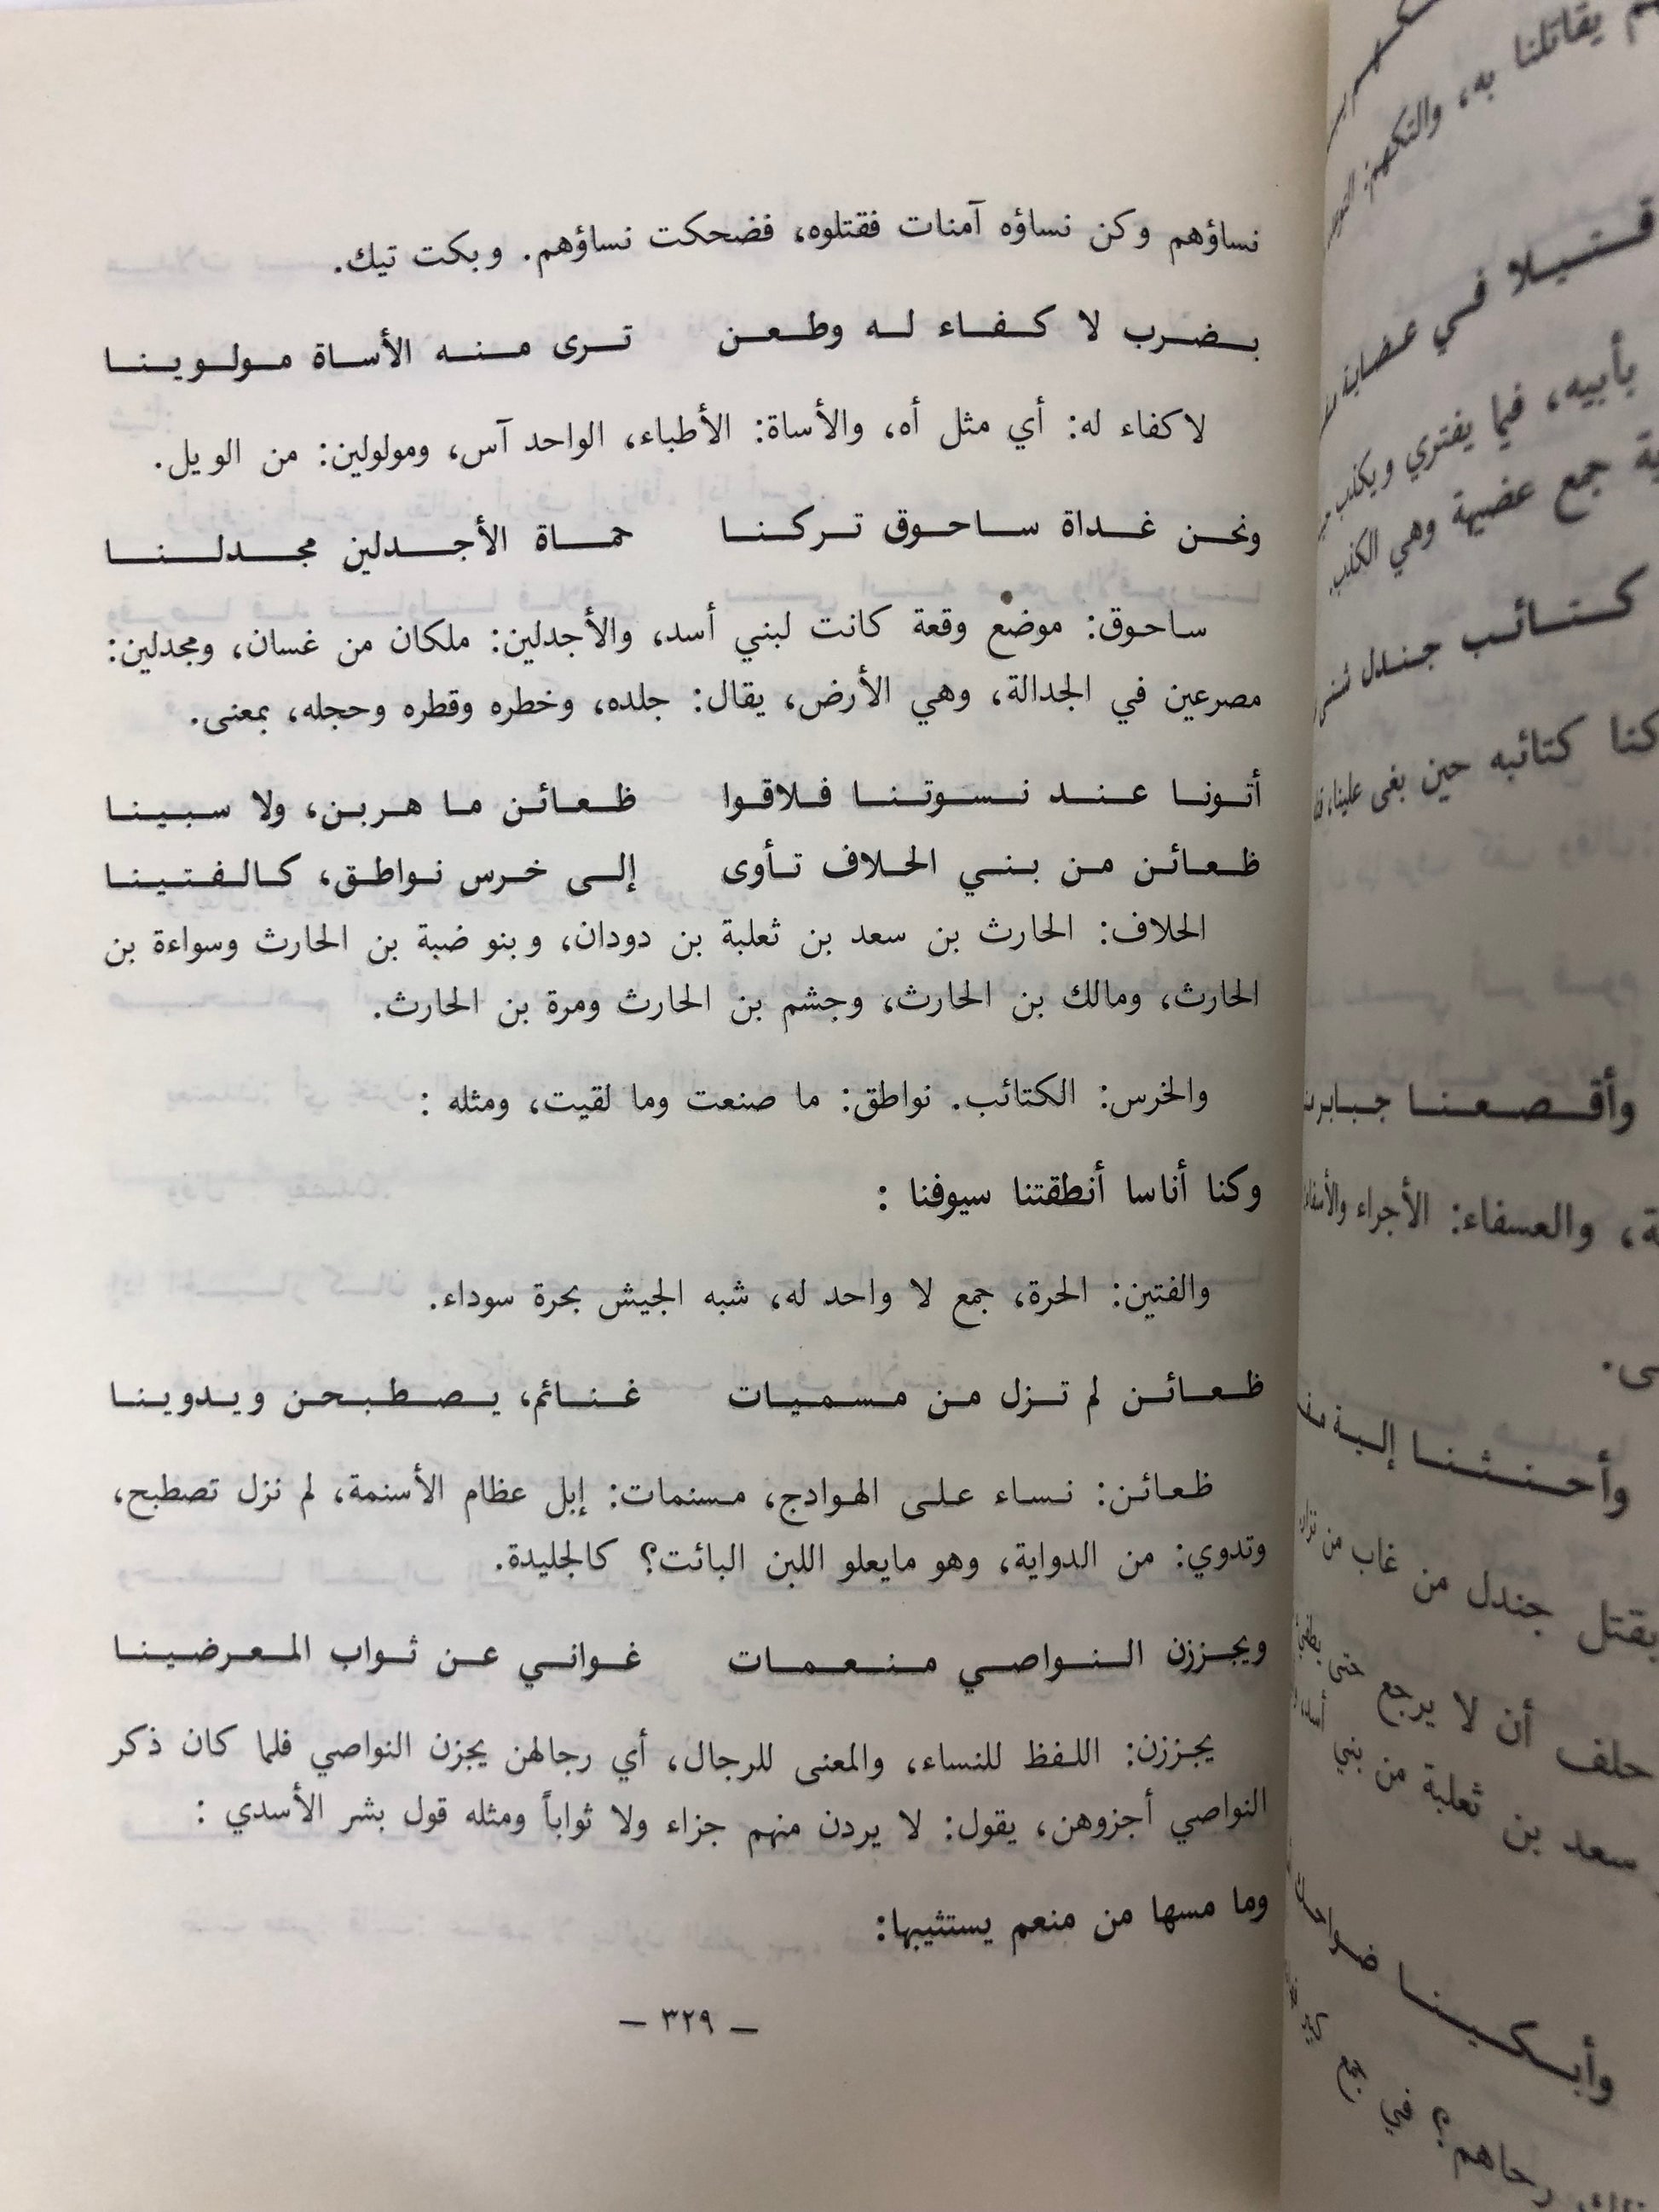 نساؤهم وكن نساؤه آمنات فقتلوه، فضحكت نساؤهم. وبكت تيك.
بضرب لا كفاء له وطعن ترى منه الأساة مولوينا
لاكفاء له: أي مثل أه، والأساة: الأطباء، الواحد آس، ومولولين: من الويل.
ونحن غداة ساحوق تركنا حماة الأجدلين مجدلنا
ساحوق: موضع وقعة كانت لبني أسد، والأجدلين: ملكان من غسان، ومجدلين:
مصرعين في الجدالة، وهي الأرض، يقال: جلده، وخطره وقطره وحجله، بمعنى.
أتونا عند نسوتنا فلاقوا ظعائن ما هربن، ولا سبينا
ظعائن من بني الحلاف تأوى إلى خرس نواطق، كالفتينا
الحلاف: الحارث بن سعد بن ثعلبة بن دودان، وبنو ضبة بن الحارث وسواءة بن
الحارث، ومالك بن الحارث، وجشم بن الحارث ومرة بن الحارث.
والخرس: الكتائب. نواطق: ما صنعت وما لقيت، ومثله :
وكنا أناسا أنطقتنا سيوفنا :
والفتين: الحرة، جمع لا واحد له، شبه الجيش بحرة سوداء.
ظعائن لم تزل من مسميات غنائم، يصطبحن ويدوينا
ظعائن: نساء على الهوادج، مسنمات: إبل عظام الأسنمة، لم نزل تصطبح،
وتدوي: من الدواية، وهو مايعلو اللبن البائت؟ كالجليدة.
ويجززن النواصي منعمات غواني عن ثواب المعرضينا
يجززن: اللفظ للنساء، والمعنى للرجال، أي رجالهن يجزن النواصي فلما كان ذكر
النواصي أجزوهن، يقول: لا يردن منهم جزاء ولا ثواباً ومثله قول بشر الأسدي :
وما مسها من منعم يستثيبها:
— ٣٢٩ —
يقاتلنا به، والتكهن:
قتيلا في عضاية
بأبيه، فيما يفتري ويكذب
جمع عضيهة وهي الكذب.
كتائب جندل
كنا كتائبه حين بغى علينا،
وأقصعنا جبابرت
ة، والعسفاء: الأجراء
وأحنثنا إلية
يقتل جندل من غاب من
حلف أن لا يرجع حتى
سعد بن ثعلبة من بني
وأبكينا ضواحك
رحاهم؟ في جمع